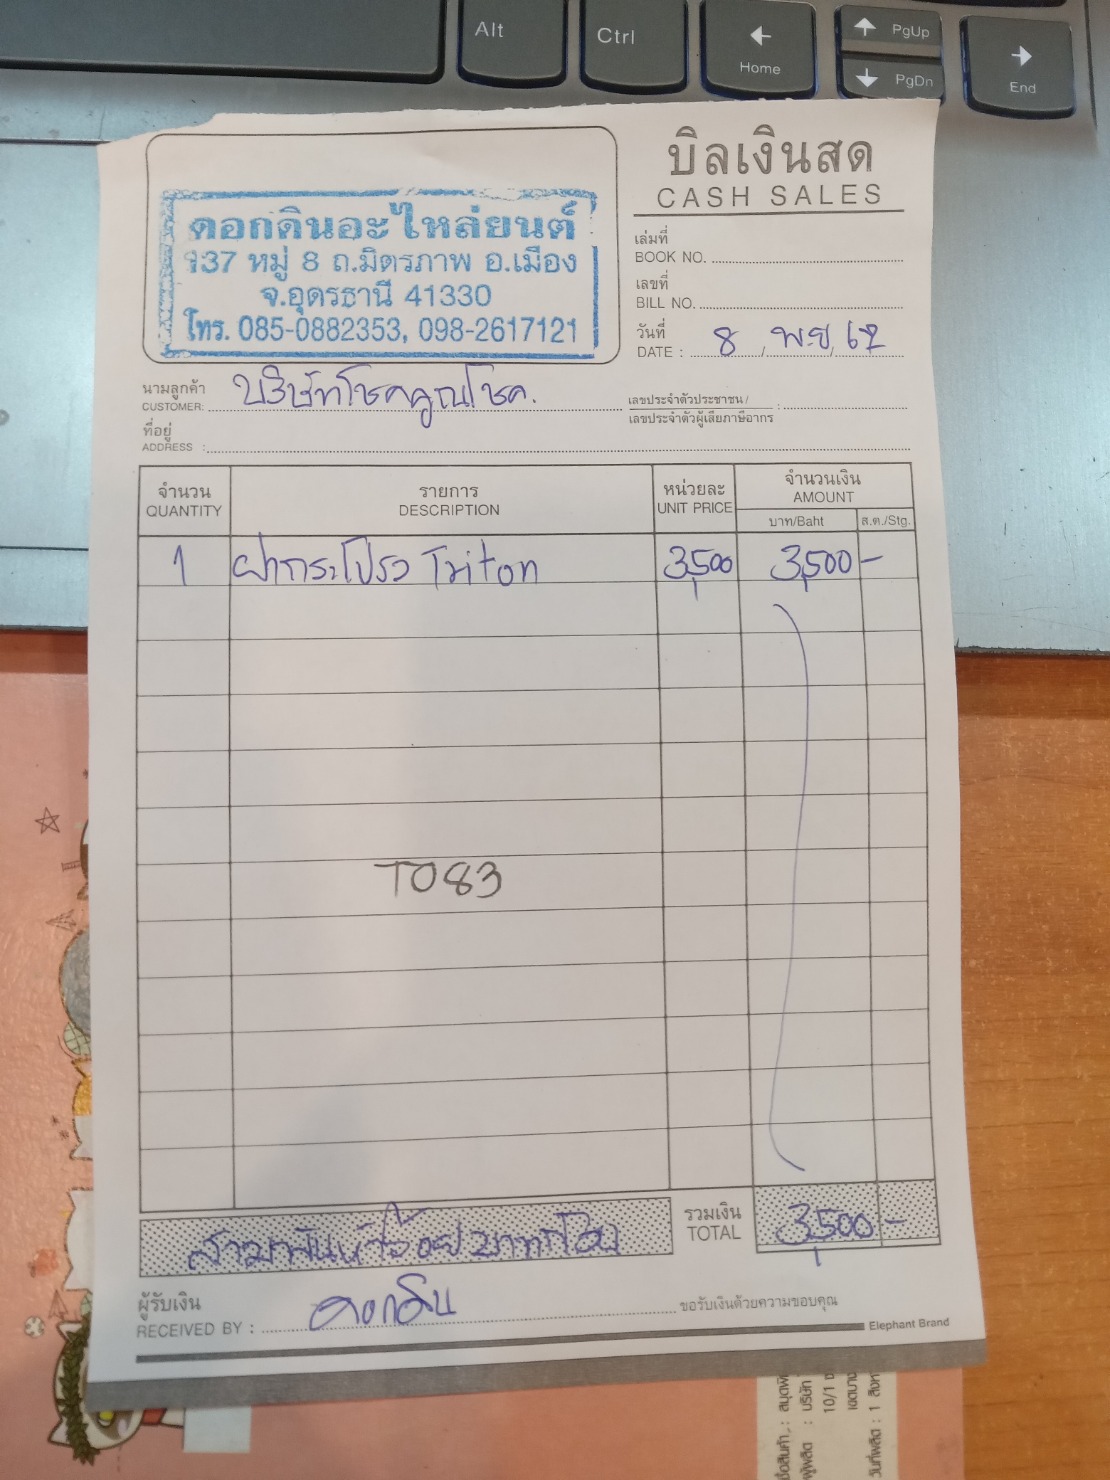 Alt
Ctrl
Home
PgUp
PgDn
End
บิลเงินสด
CASH SALES
ดอกดินอะไหล่ยนต์
137 หมู่ 8 ถ.มิตรภาพ อ.เมือง
จ.อุดรธานี 41330
โทร. 085-0882353, 098-2617121
เล่มที่
BOOK NO.
เลขที่
BILL NO.
วันที่
DATE : 8 / พ.ย / 67
นามลูกค้า
CUSTOMER: บริษัทโชคคูณโชค.
เลขประจำตัวประชาชน /
เลขประจำตัวผู้เสียภาษีอากร :
ที่อยู่
ADDRESS :
จำนวน รายการ หน่วยละ จำนวนเงิน
QUANTITY DESCRIPTION UNIT PRICE AMOUNT
บาท/Baht ส.ต./Stg.
1 ฝากระโปรง Triton 3,500 3,500 -
T083
สามพันห้าร้อยบาทถ้วน
รวมเงิน
TOTAL 3,500 -
ผู้รับเงิน
RECEIVED BY : ดอกดิน
ขอรับเงินด้วยความขอบคุณ
Elephant Brand